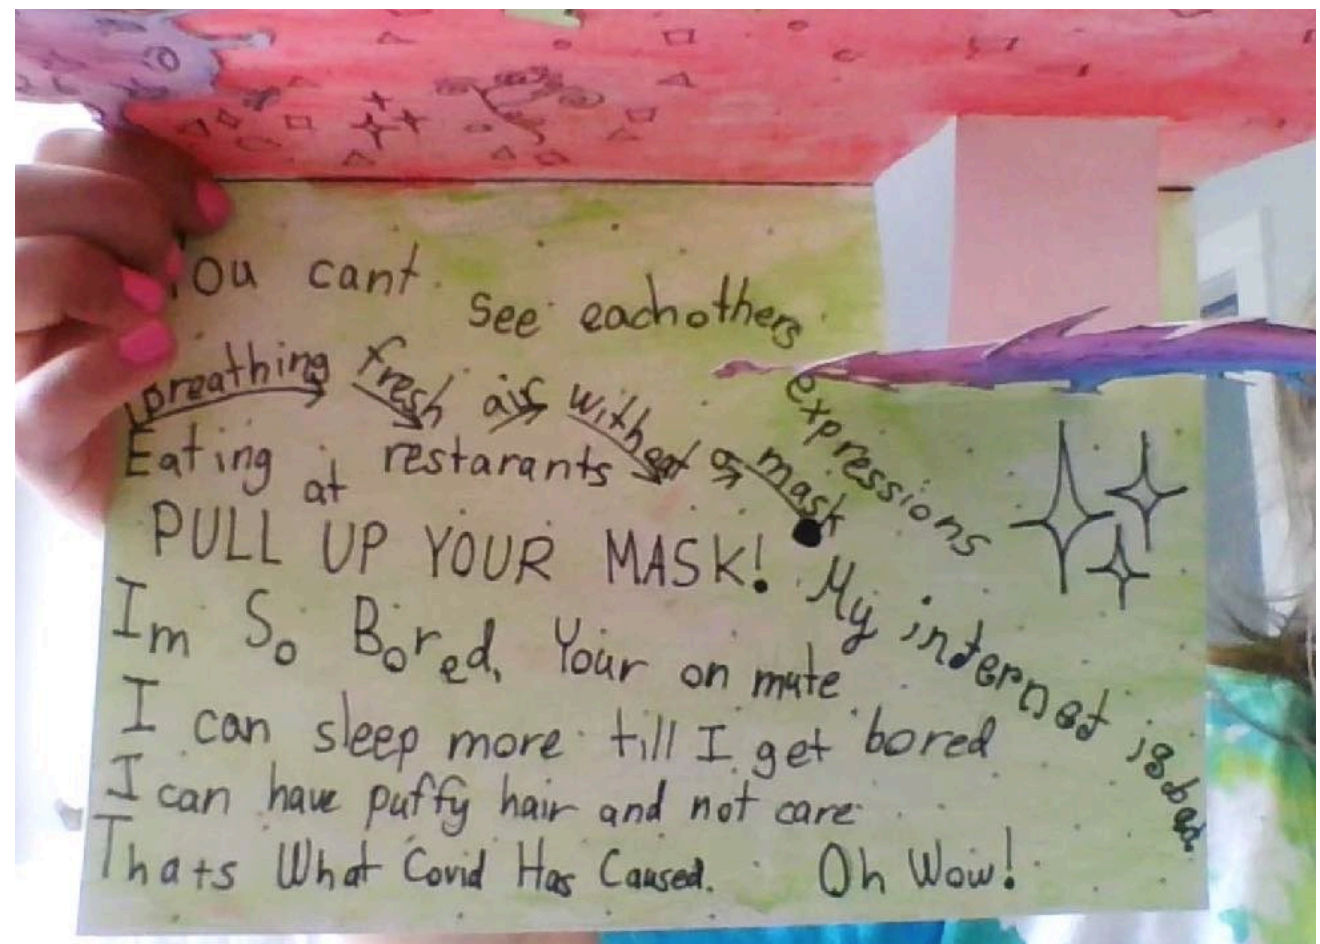 You cant see eachothers expressions
breathing fresh air without a mask
Eating at restarants
PULL UP YOUR MASK!
My internet is bad
Im So Bored, Your on mute
I can sleep more till I get bored
I can have puffy hair and not care
Thats What Covid Has Caused. Oh Wow!